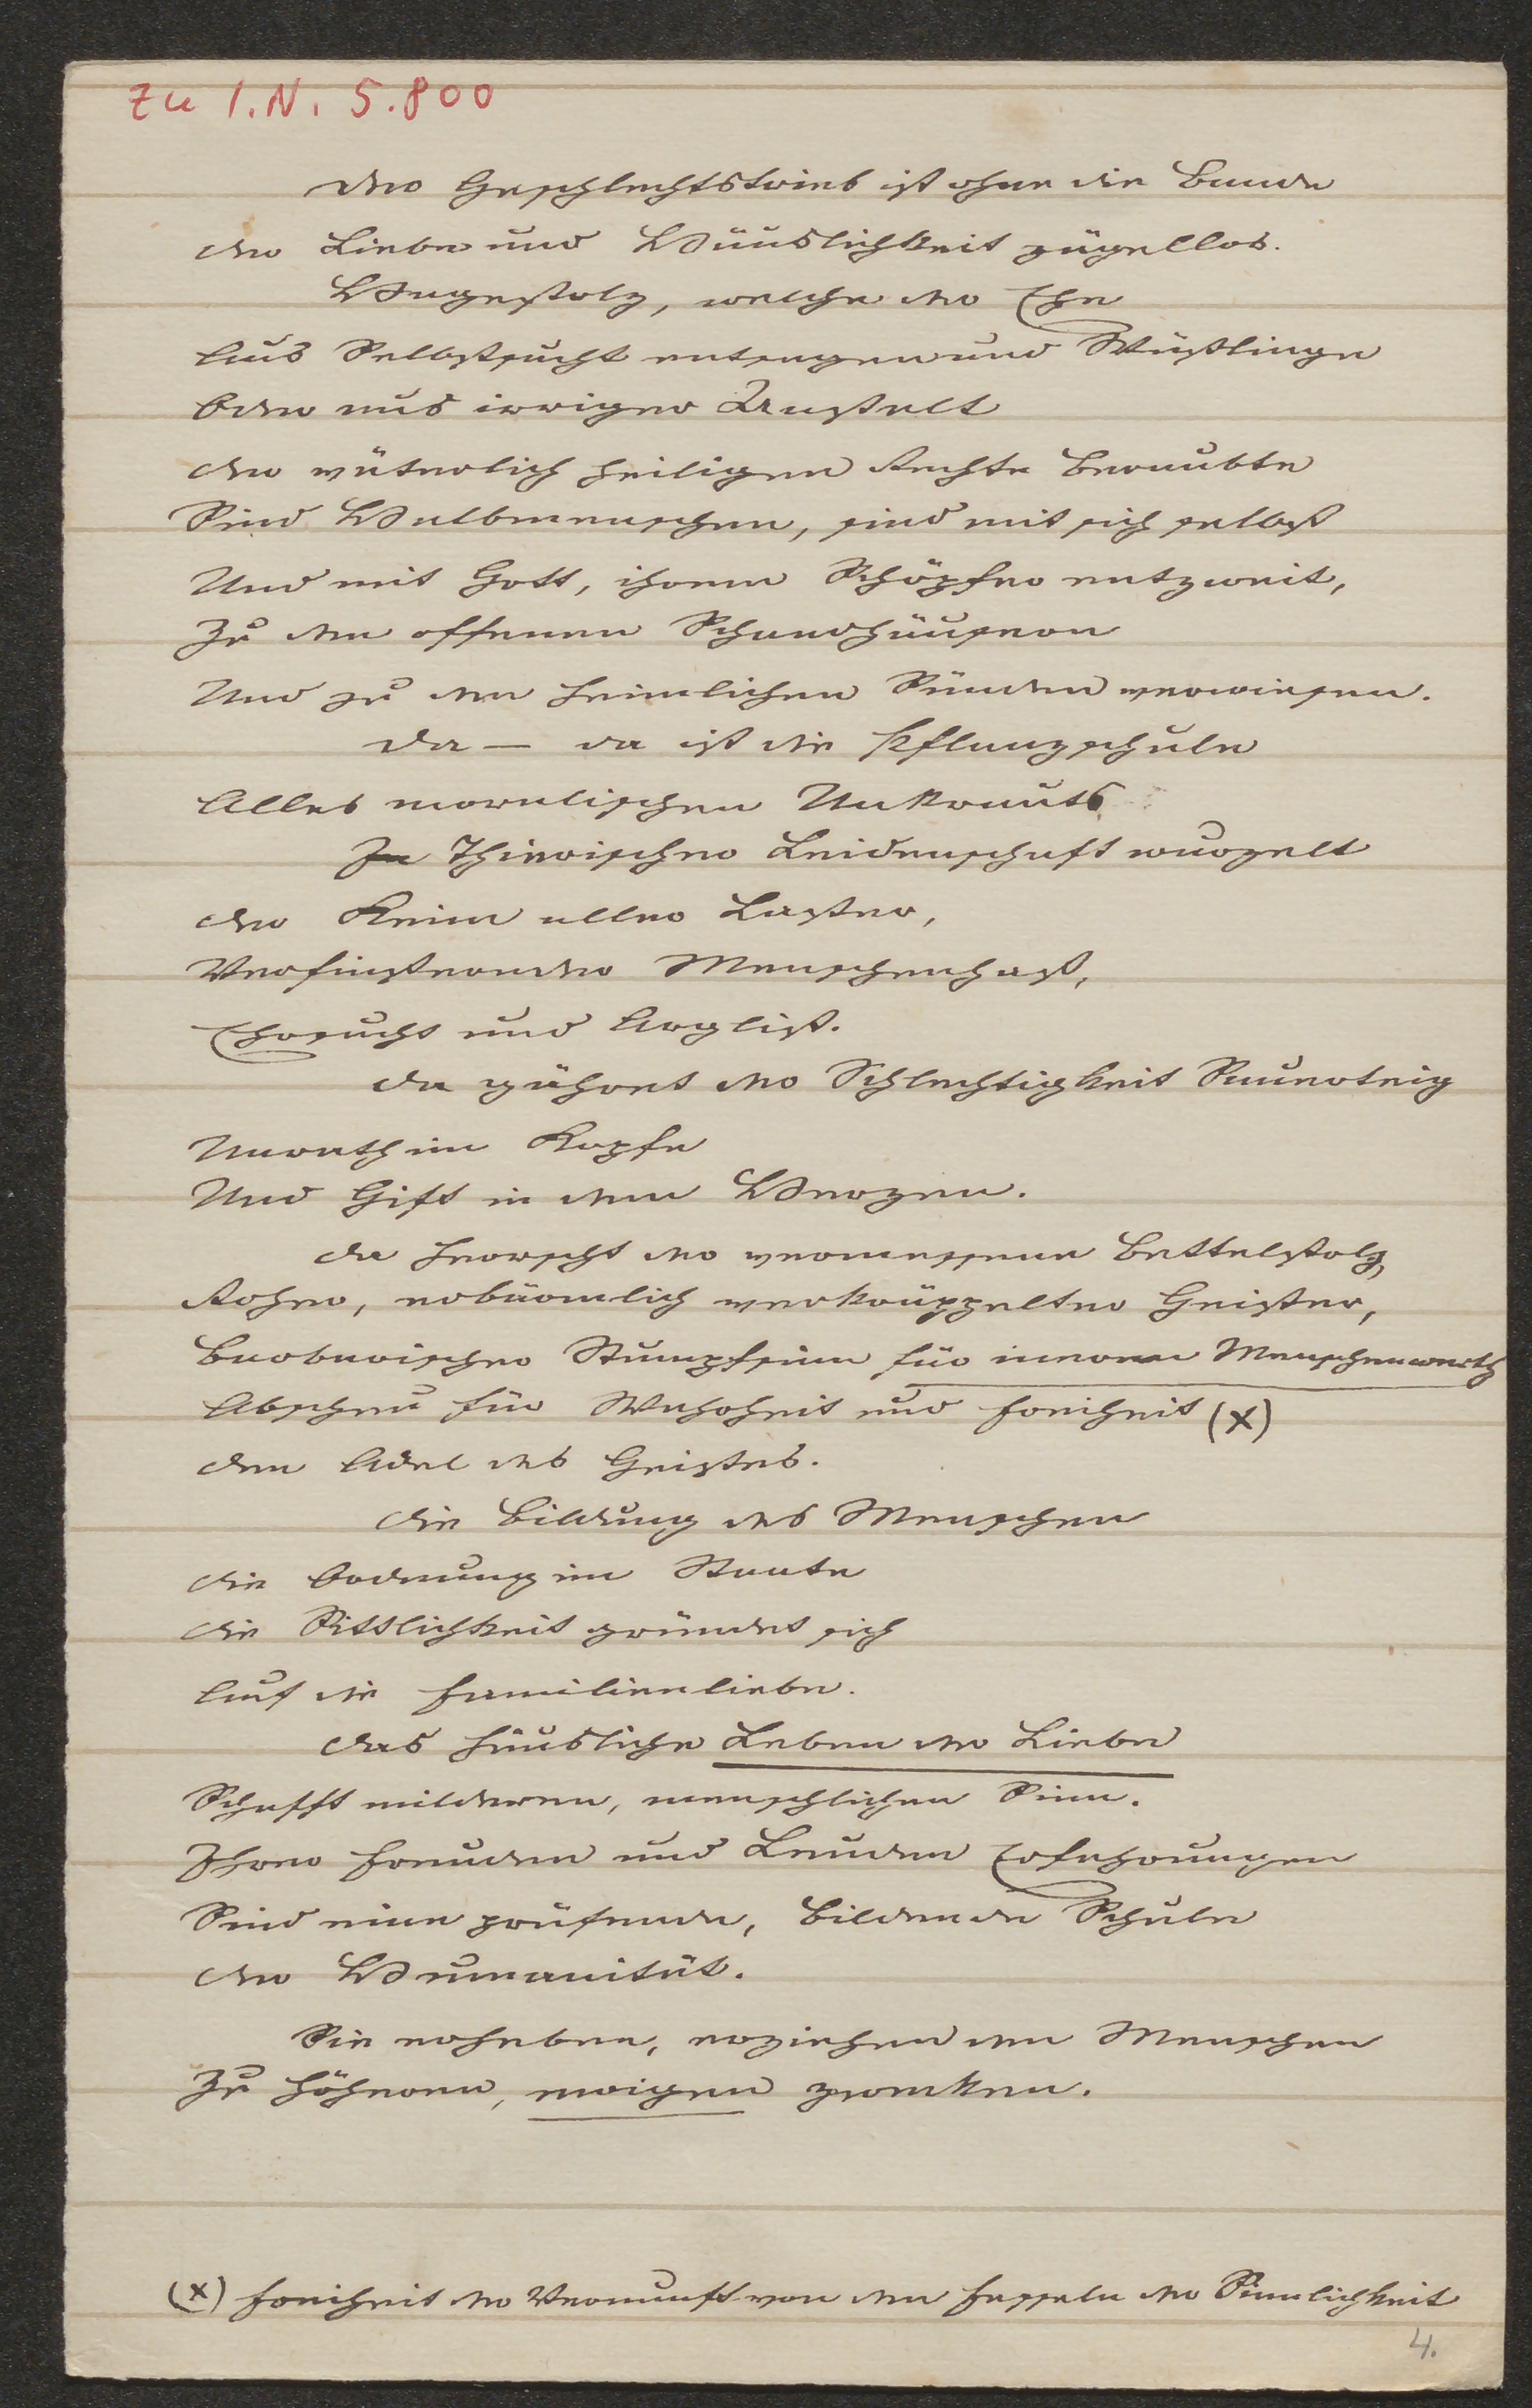 Zu I.N. 5.800
Der Geschlechtstrieb ist ohne die Bande
Der Liebe und Häuslichkeit zügellos.
Hagestolz, welche der Ehe
Aus Selbstsucht entsagen und Wüstlinge
Oder aus irriger Anstalt
Der väterlich heiligen Rechte Beraubte
Sind Halbmenschen, sind mit sich selbst
Und mit Gott, ihrem Schöpfer entzweit,
Zu den offenen Schandhäusern
Und zu den heimlichen Sünden verwiesen.
Da – da ist die Pflanzschule
Alles moralischen Unkrauts
In Thierischer Leidenschaft wurzelt
Der Keim aller Laster,
Verfinsternder Menschenhaß,
Ehrsucht und Arglist.
Da gähret der Schlechtigkeit Sauerteig
Unrath im Kopfe
Und Gift in dem Herzen.
Da herrscht der vermessene Bettelstolz,
Roher, erbärmlich verkrüppelter Geister,
Barbarischer Stumpfsinn für inneren Menschenwerth
Abscheu für Wahrheit und Freiheit (X)
Den Adel des Geistes.
Die Bildung des Menschen
Die Ordnung im Staate
Die Sittlichkeit gründet sich
Auf die Familienliebe.
Das häusliche Leben der Liebe
Schafft milderen, menschlichen Sinn.
Ihrer Freuden und Leiden Erfahrungen
Sind eine prüfende, bildende Schule
Der Humanität.
Sie erheben, erziehen den Menschen
Zu höheren, ewigen Zwecken.
(X) Freiheit der Vernunft von den Fesseln der Sinnlichkeit
4.